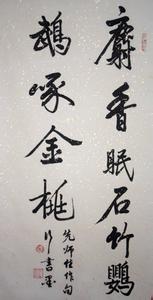 麝香眠石竹鸚
鵡啄金桃